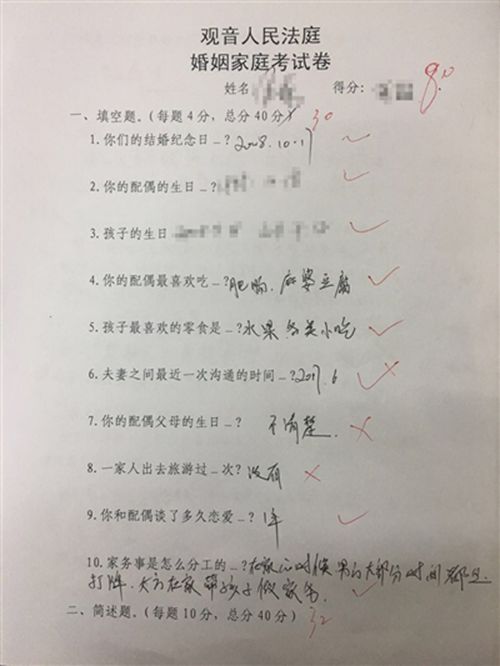 观音人民法庭
婚姻家庭考试卷
姓名 得分： 80
一、填空题。（每题4分，总分40分） 30
1.你们的结婚纪念日_? 2008.10.17
2.你的配偶的生日_?
3.孩子的生日
4.你的配偶最喜欢吃_? 肥肠、麻婆豆腐
5.孩子最喜欢的零食是_? 水果 各类小吃
6.夫妻之间最近一次沟通的时间_? 2017.6
7.你的配偶父母的生日_? 不清楚.
8.一家人出去旅游过_次? 没有
9.你和配偶谈了多久恋爱_? 1年
10.家务事是怎么分工的_? 在家的时候 男的大部分时间都是
打牌. 女方在家带孩子做家务
二、简述题。（每题10分，总分40分） 32